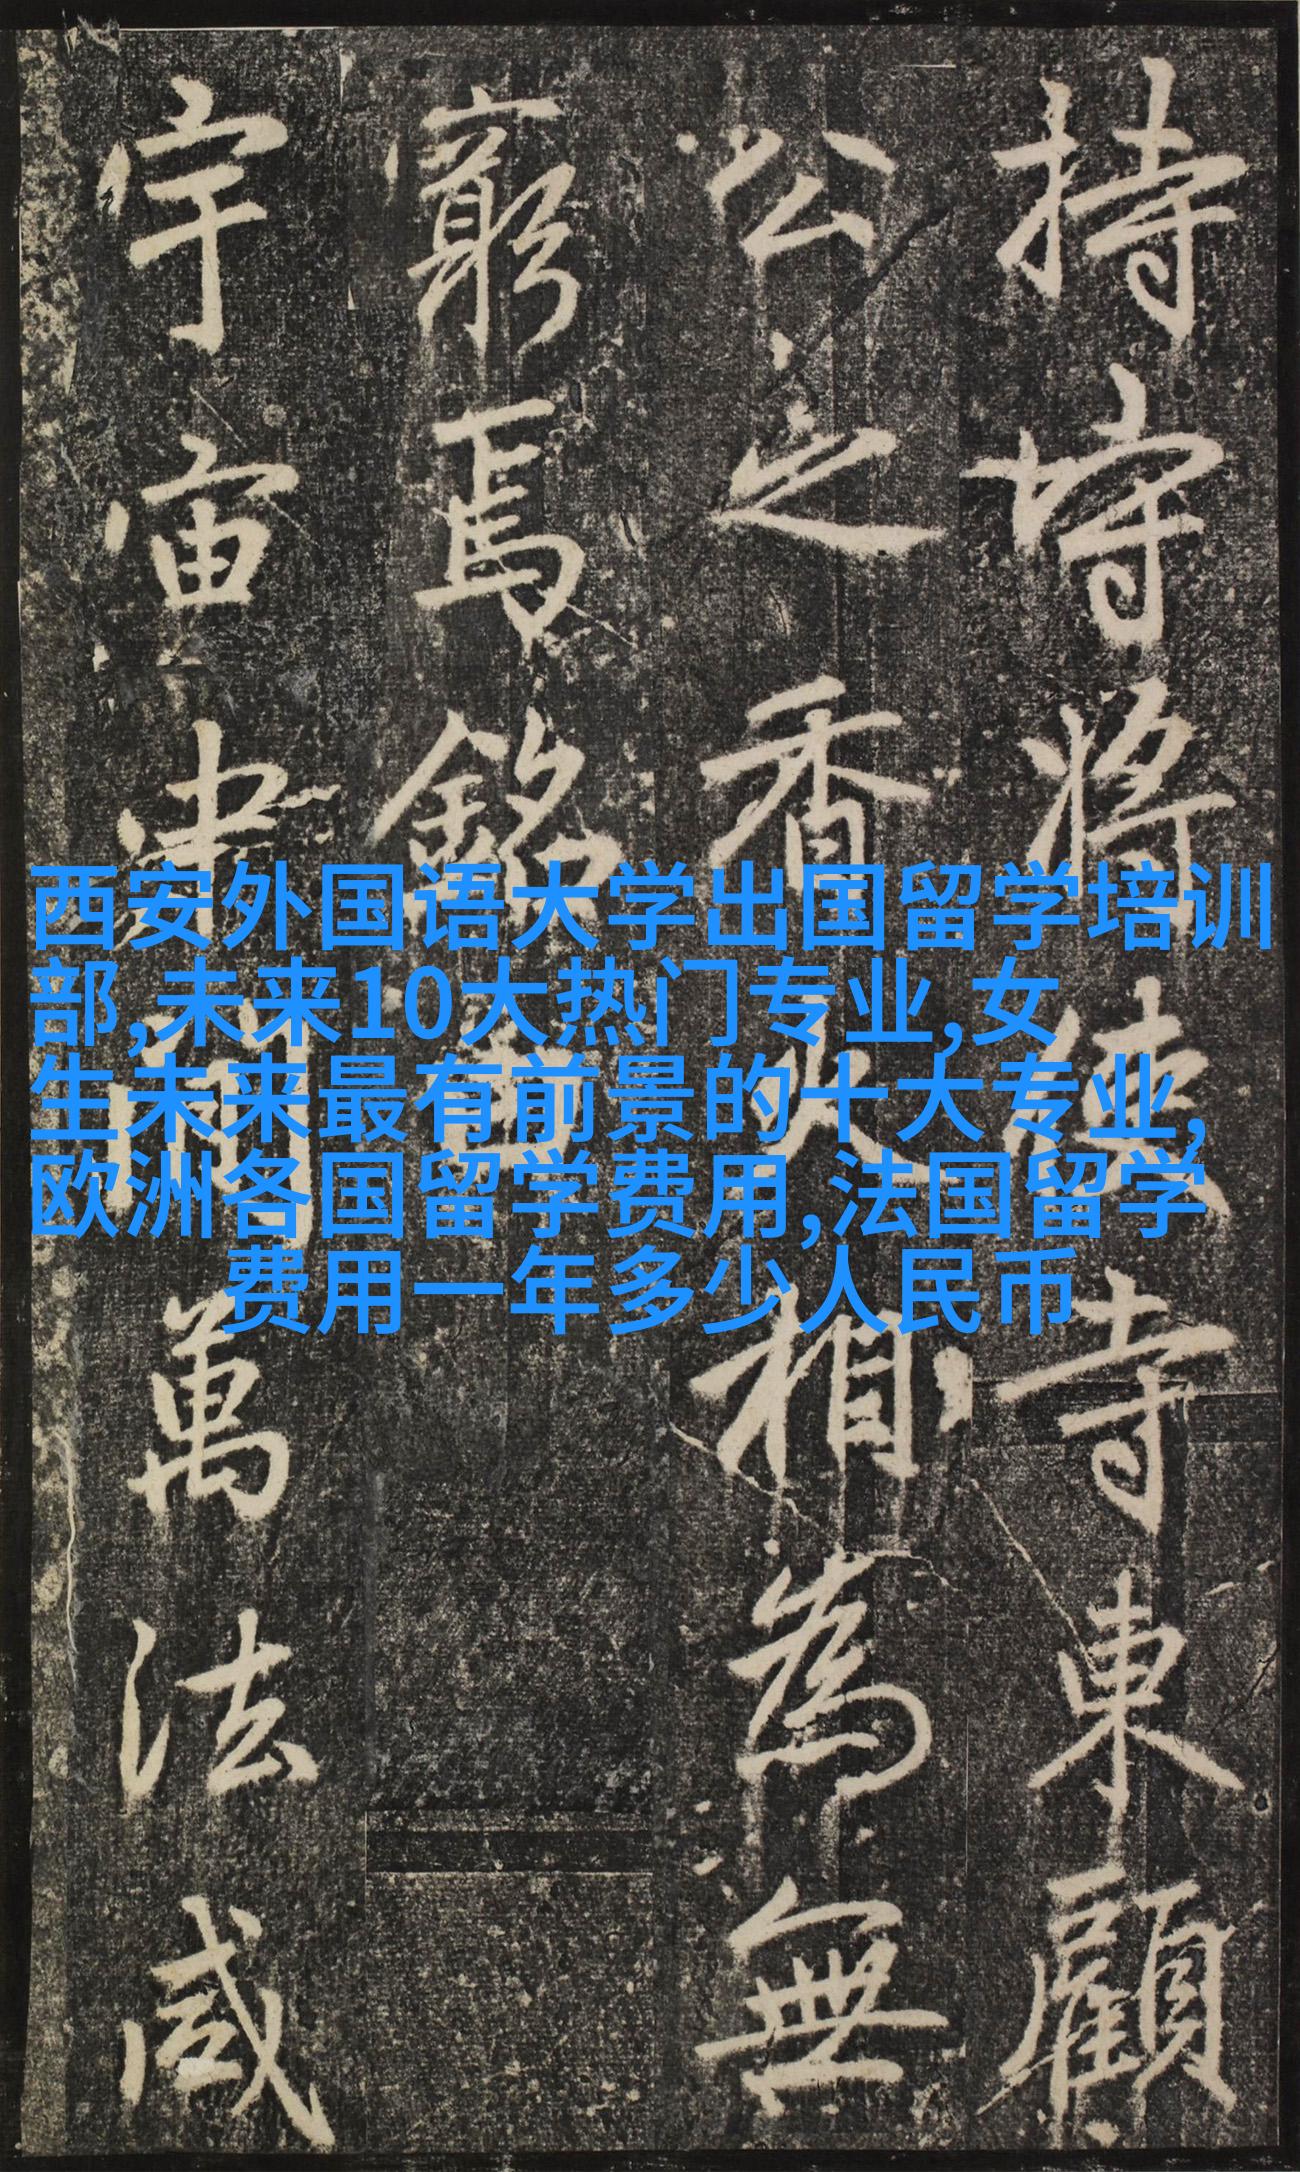 持
将
寺東顧
公之香火相為無
窮焉銘曰
宇宙
萬法咸
西安外国语大学出国留学培训
部,未来10大热门专业,女
生未来最有前景的十大专业,
欧洲各国留学费用,法国留学
费用一年多少人民币